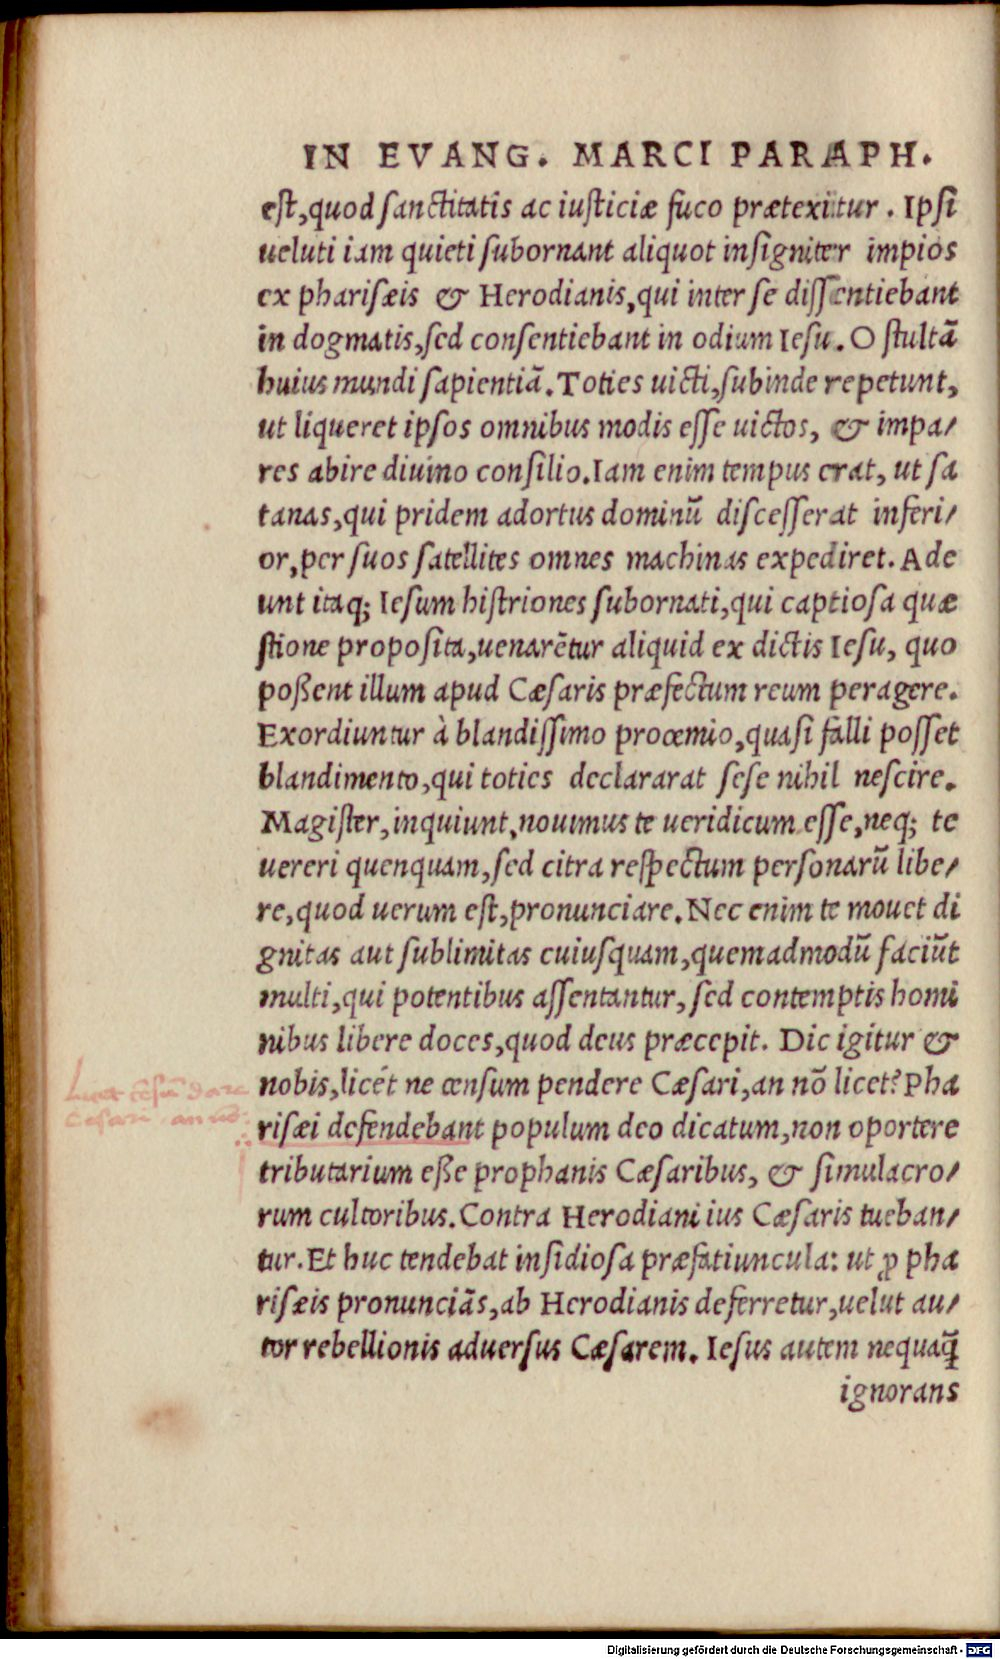 IN EVANG. MARCI PARAPH.
est, quod sanctitatis ac iusticiæ fuco prætexitur. Ipsi
ueluti iam quieti subornant aliquot insigniter impios
ex pharisæis & Herodianis, qui inter se dissentiebant
in dogmatis, sed consentiebant in odium Iesu. O stultã
huius mundi sapientiã. Toties uicti, subinde repetunt,
ut liqueret ipsos omnibus modis esse uictos, & impa/
res abire diuino consilio. Iam enim tempus erat, ut sa
tanas, qui pridem adortus dominũ discesserat inferi/
or, per suos satellites omnes machinas expediret. Ade
unt itaq; Iesum histriones subornati, qui captiosa quæ
stione proposita, uenarẽtur aliquid ex dictis Iesu, quo
poßent illum apud Cæsaris præfectum reum peragere.
Exordiuntur à blandissimo prooemio, quasi falli posset
blandimento, qui toties declararat sese nihil nescire.
Magister, inquiunt, nouimus te ueridicum esse, neq; te
uereri quenquam, sed citra respectum personarũ libe/
re, quod uerum est, pronunciare. Nec enim te mouet di
gnitas aut sublimitas cuiusquam, quemadmodũ faciũt
multi, qui potentibus assentantur, sed contemptis homi
nibus libere doces, quod deus præcepit. Dic igitur &
nobis, licét ne censum pendere Cæsari, an nõ licet? Pha
risæi defendebant populum deo dicatum, non oportere
tributarium eße prophanis Cæsaribus, & simulacro/
rum cultoribus. Contra Herodiani ius Cæsaris tueban/
tur. Et huc tendebat insidiosa præfatiuncula: ut ꝓ pha
risæis pronunciãs, ab Herodianis deferretur, uelut au/
tor rebellionis aduersus Cæsarem. Iesus autem nequaq̃
ignorans
Cesari an
Digitalisierung gefördert durch die Deutsche Forschungsgemeinschaft - DFG